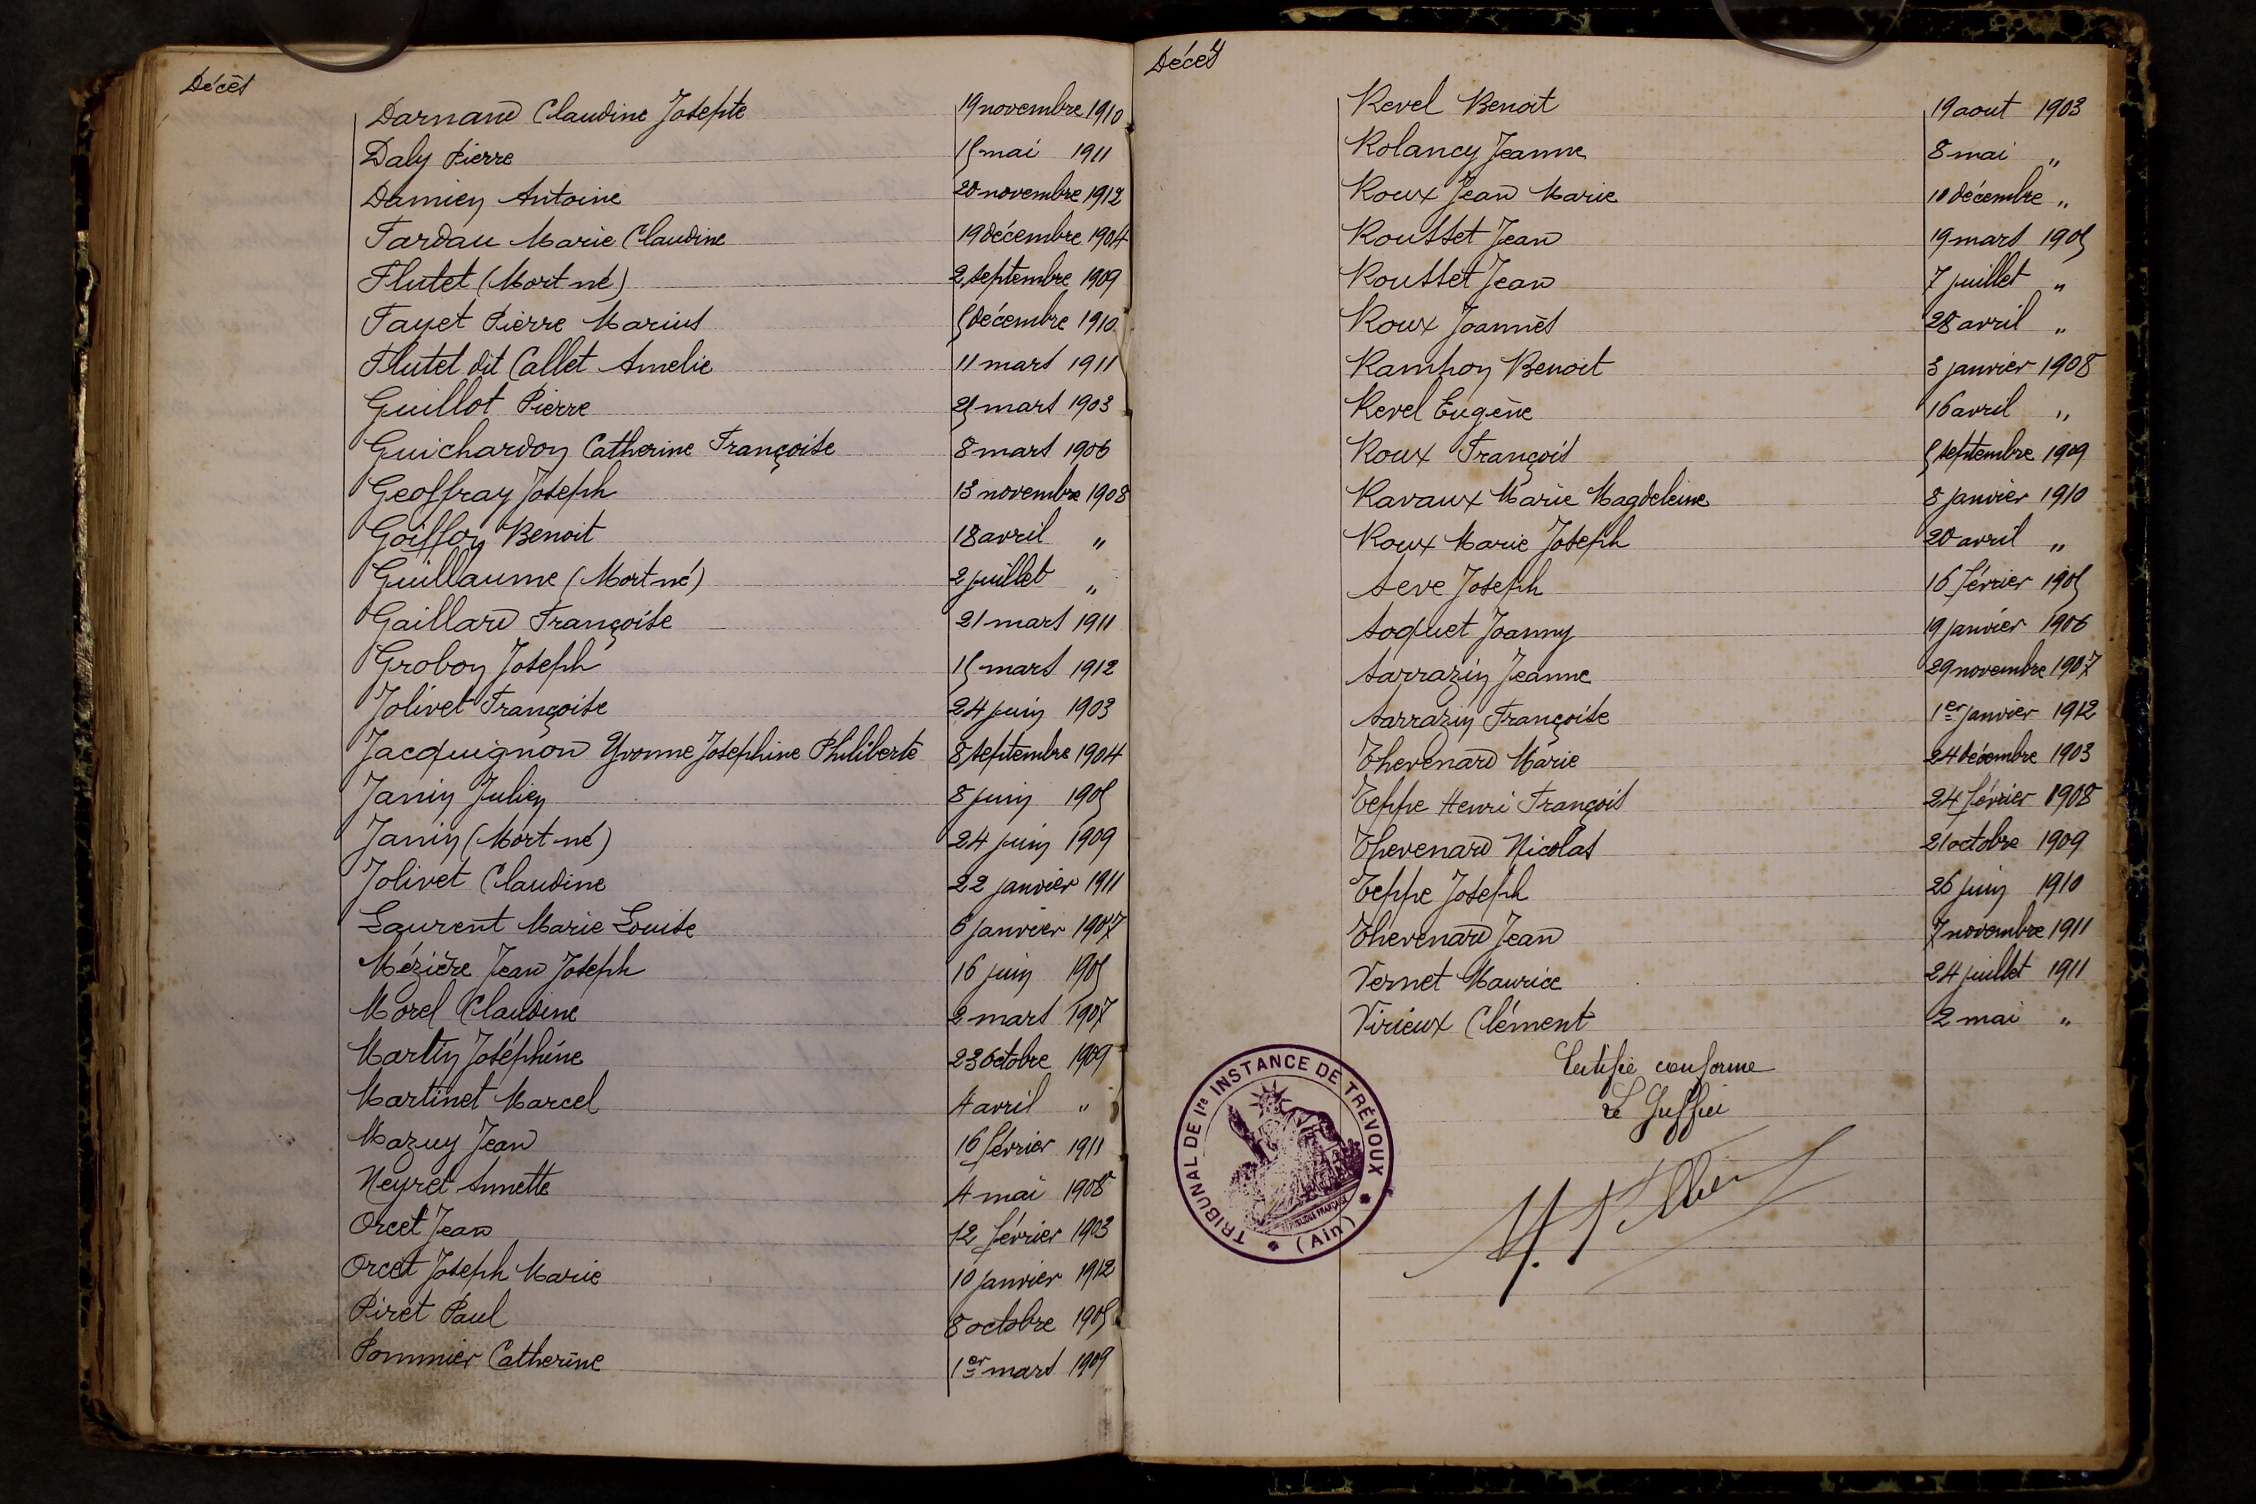 Décès
Darnand Claudine Josephte 19 novembre 1910
Daly Pierre 15 mai 1911
Damien Antoine 20 novembre 1912
Fardau Marie Claudine 19 décembre 1904
Flutet (Mort né) 2 septembre 1909
Fayet Pierre Marius 5 décembre 1910
Flutet dit Callet Amelie 11 mars 1911
Guillot Pierre 25 mars 1903
Guichardon Catherine Françoise 8 mars 1906
Geoffray Joseph 13 novembre 1908
Goiffon Benoit 18 avril "
Guillaume (Mort né) 2 juillet "
Gaillard Françoise 21 mars 1911
Grobon Joseph 15 mars 1912
Jolivet Françoise 24 juin 1903
Jacquignon Yvonne Josephine Philiberte 8 septembre 1904
Janin Julien 8 juin 1905
Janin (Mort né) 24 juin 1909
Jolivet Claudine 22 janvier 1911
Laurent Marie Louise 6 janvier 1907
Mézière Jean Joseph 16 juin 1905
Morel Claudine 2 mars 1907
Martin Joséphine 23 octobre 1909
Martinet Marcel 4 avril "
Mazuy Jean 16 février 1911
Neyret Annette 4 mai 1908
Orcet Jean 12 février 1903
Orcet Joseph Marie 10 janvier 1912
Piret Paul 8 octobre 1905
Pommier Catherine 1er mars 1909
Décès
Revel Benoit 19 aout 1903
Rolancy Jeanne 8 mai "
Roux Jean Marie 10 décembre "
Rousset Jean 19 mars 1905
Rousset Jean 7 juillet "
Roux Joannès 28 avril "
Ramhon Benoit 3 janvier 1908
Revel Eugène 16 avril "
Roux François 5 septembre 1909
Ravaux Marie Magdeleine 8 janvier 1910
Roux Marie Joseph 20 avril "
Seve Joseph 16 février 1905
Soquet Joanny 19 janvier 1906
Sarrazin Jeanne 29 novembre 1907
Sarrazin Françoise 1er janvier 1912
Thevenard Marie 24 décembre 1903
Teppe Henri François 24 février 1908
Thevenard Nicolas 21 octobre 1909
Teppe Joseph 26 juin 1910
Thevenard Jean 7 novembre 1911
Vernet Maurice 24 juillet 1911
Virieux Clément 2 mai "
Certifié conforme
Le Greffier
TRIBUNAL DE 1re INSTANCE DE TRÉVOUX
(Ain)